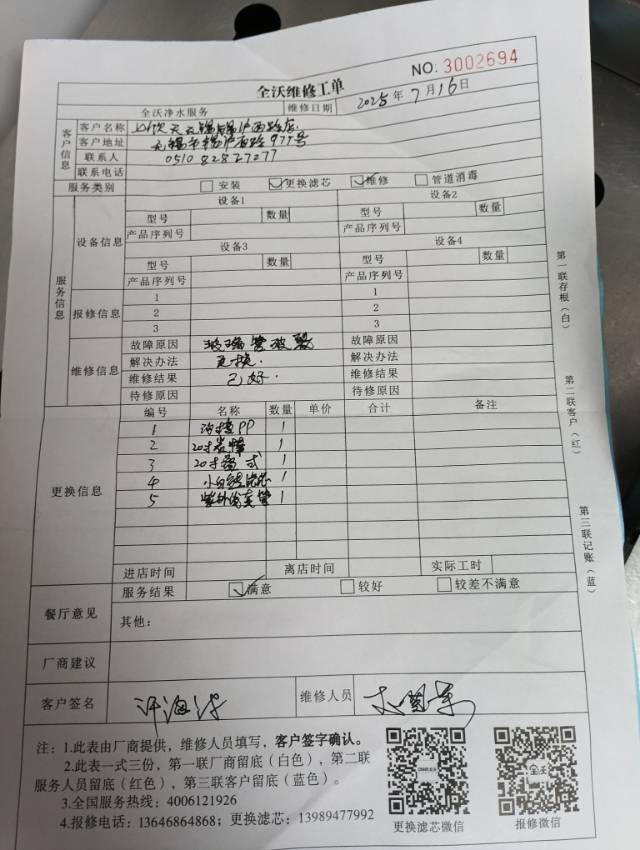 NO. 3002694
全沃维修工单
全沃净水服务 维修日期 2025年7月16日
客户信息
客户名称
客户地址 无锡市锡沪西路977号
联系人 0510 82827277
联系电话
服务类别 安装 更换滤芯 维修 管道消毒
服务信息
设备信息
设备1 设备2
型号 数量 型号 数量
产品序列号 产品序列号
设备3 设备4
型号 数量 型号 数量
产品序列号 产品序列号
报修信息
1 1
2 2
3 3
维修信息
故障原因 玻璃管破裂 故障原因
解决办法 更换. 解决办法
维修结果 已好. 维修结果
待修原因 待修原因
更换信息
编号 名称 数量 单价 合计 备注
1 PP 1
2 20寸炭棒 1
3 20寸 式 1
4 1
5 紫外 1
进店时间 离店时间 实际工时
餐厅意见
服务结果 满意 较好 较差不满意
其他：
厂商建议
客户签名 维修人员
注：1.此表由厂商提供，维修人员填写，客户签字确认。
2.此表一式三份，第一联厂商留底（白色），第二联
服务人员留底（红色），第三联客户留底（蓝色）。
3.全国服务热线：4006121926
4.报修电话：13646864868；更换滤芯：13989477992
更换滤芯微信
报修微信
第一联存根（白）
第二联客户（红）
第三联记账（蓝）